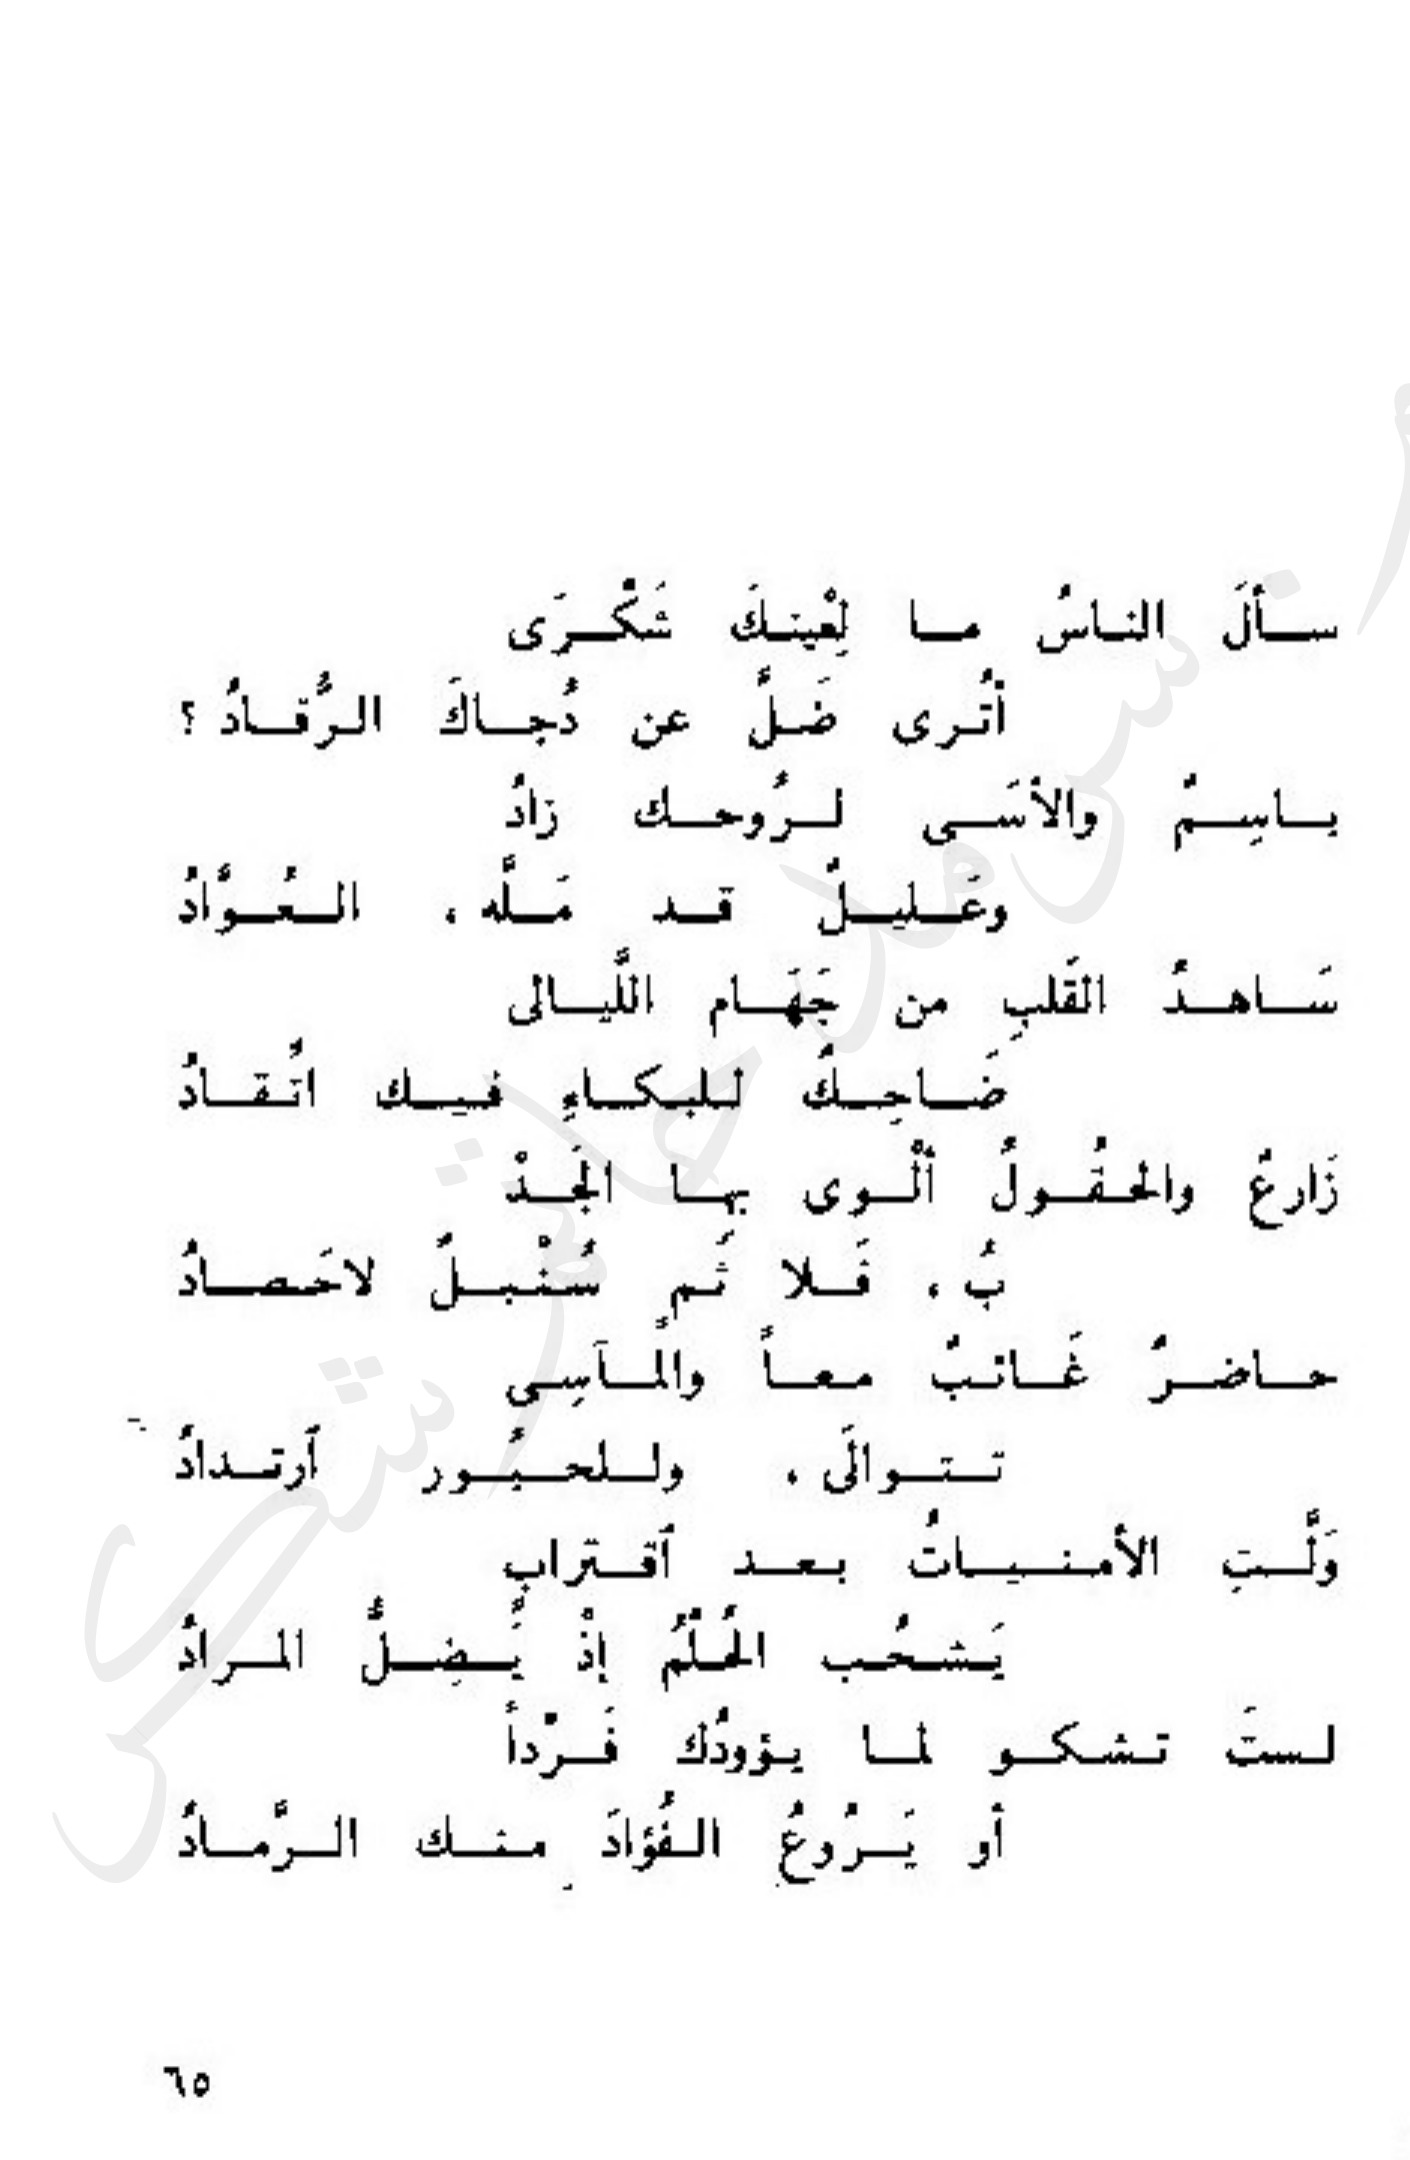 سألَ الناسُ ما لِعْينكَ شَكْرَى
أتُرى ضَلَّ عن دُجاكَ الرُّقادُ ؟
باسِمٌ والأسَى لرُوحك زَادُ
وعَليلٌ قد مَلَّه ، العُوَّادُ
سَاهدُ القَلبِ من جَهَام اللَّيالى
ضَاحِكٌ للبكاءِ فيك اتُقادُ
زَارعٌ والحقُولُ ألْوى بها الجَدْ
بُ ، فَلا ثَم سُنْبلٌ لاحَصادُ
حاضرٌ غَائبٌ معاً والَمآسِى
تتوالَى ، وللحبُور ٱرتدادُ
وَلَّتِ الأمنياتُ بعد ٱقترابٍ
يَشحُب الحُلْمُ إذْ يَضِلُّ المرادُ
لستَ تشكو لما يؤودُك فَرْداً
أو يَرُوعُ الفُؤادَ منك الرَّمادُ
٦٥